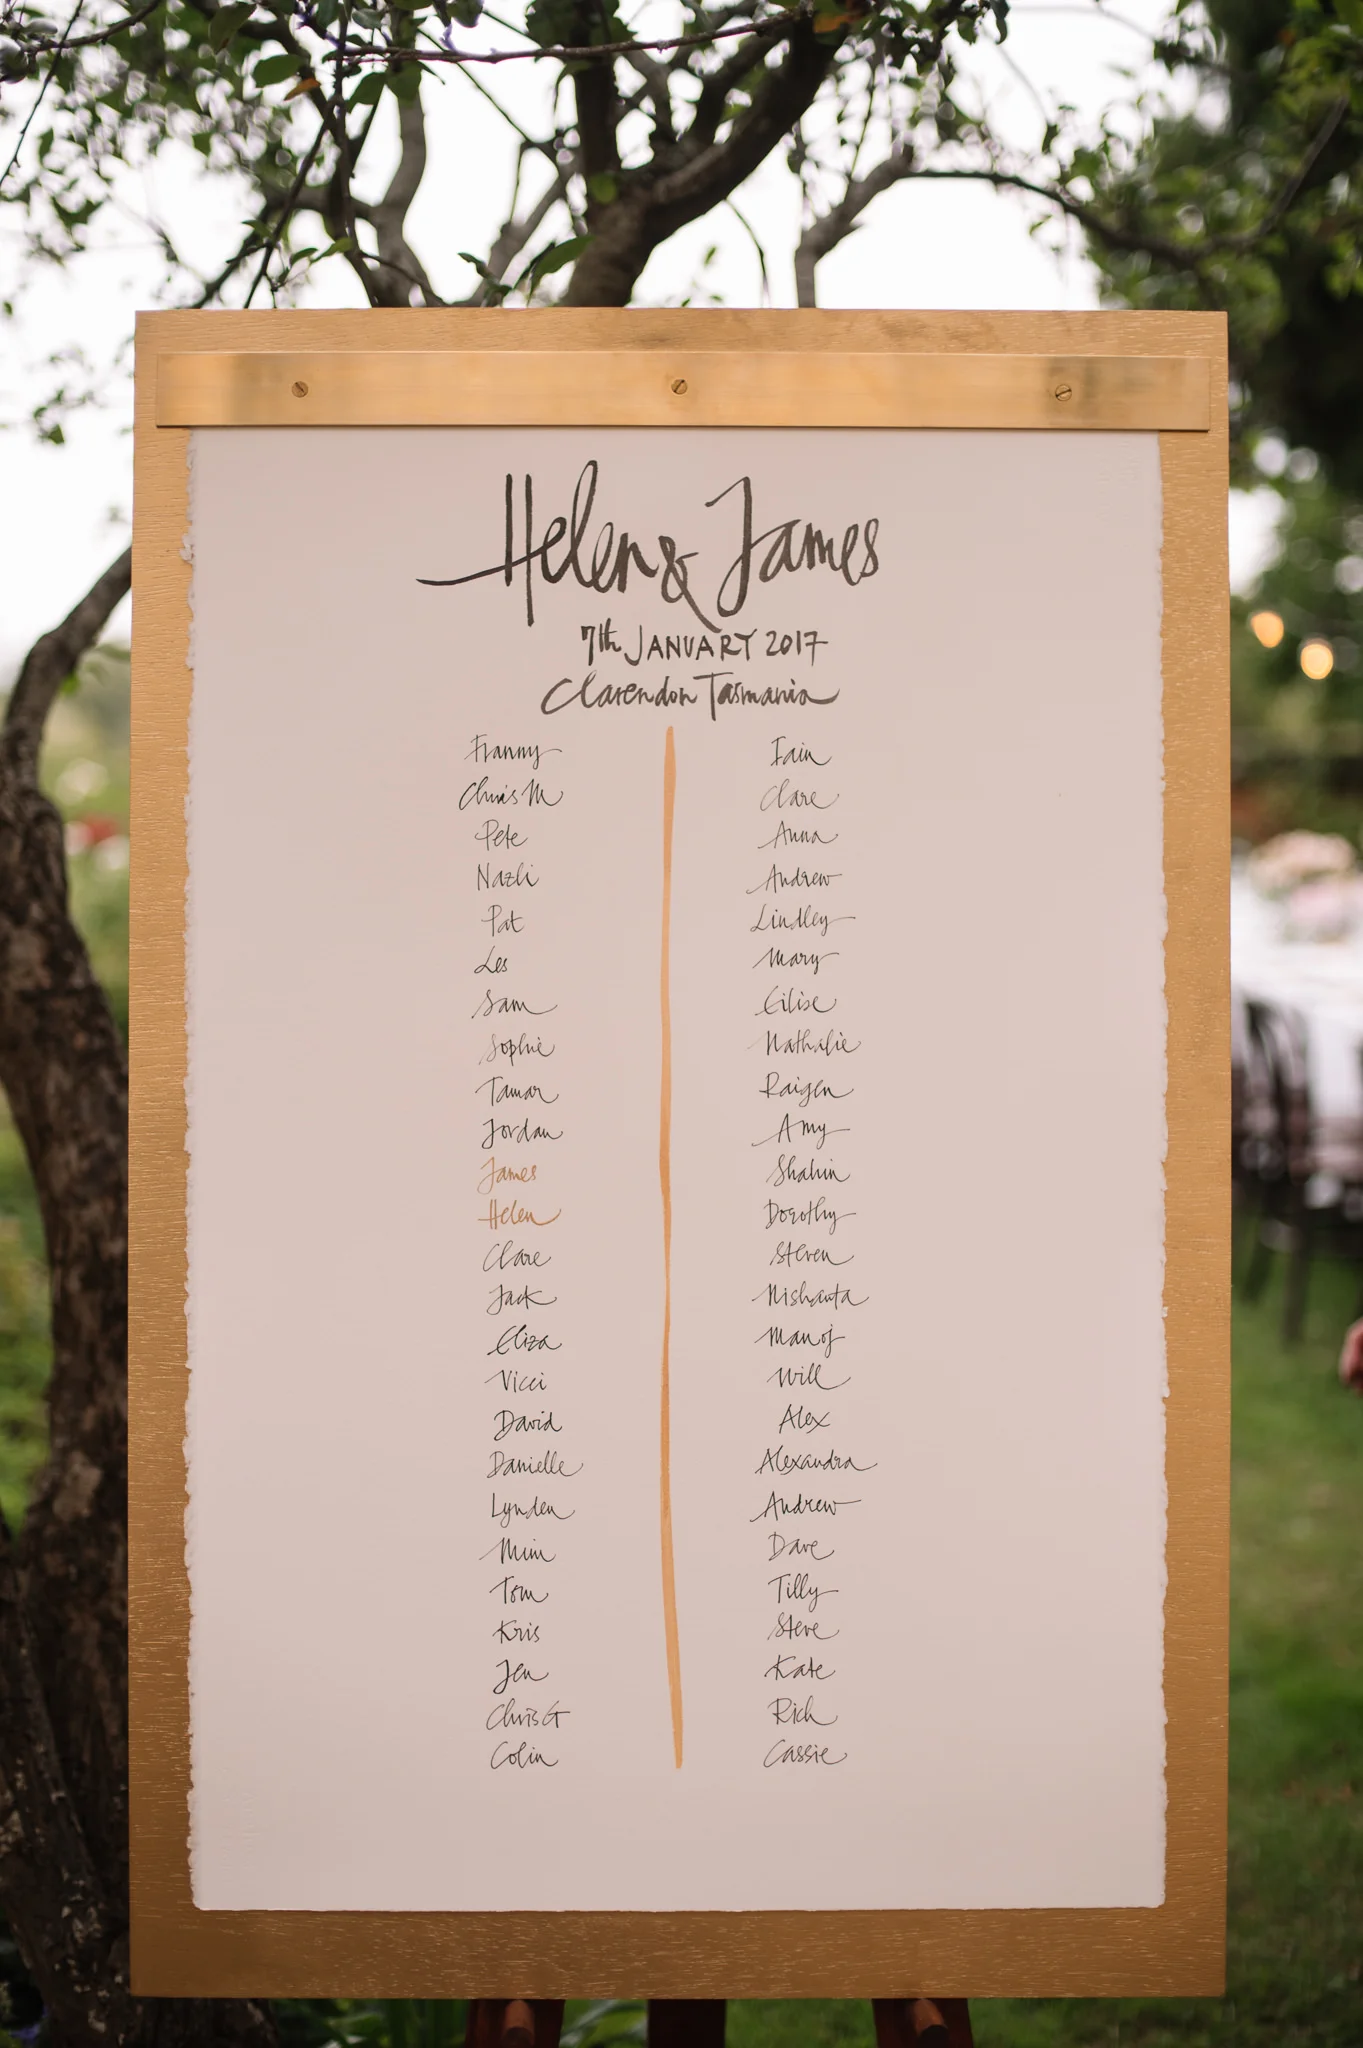 Helen & James
7th JANUARY 2017
Clarendon Tasmania
Franny
Chris M
Pete
Nazli
Pat
Les
Sam
Sophie
Tamar
Jordan
James
Helen
Clare
Jack
Eliza
Vicci
David
Danielle
Lynden
Mim
Tom
Kris
Jen
Chris G
Colin
Iain
Clare
Anna
Andrew
Lindley
Mary
Eilise
Nathalie
Raigen
Amy
Shahin
Dorothy
Steven
Nishanta
Manoj
Will
Alex
Alexandra
Andrew
Dave
Tilly
Steve
Kate
Rich
Cassie